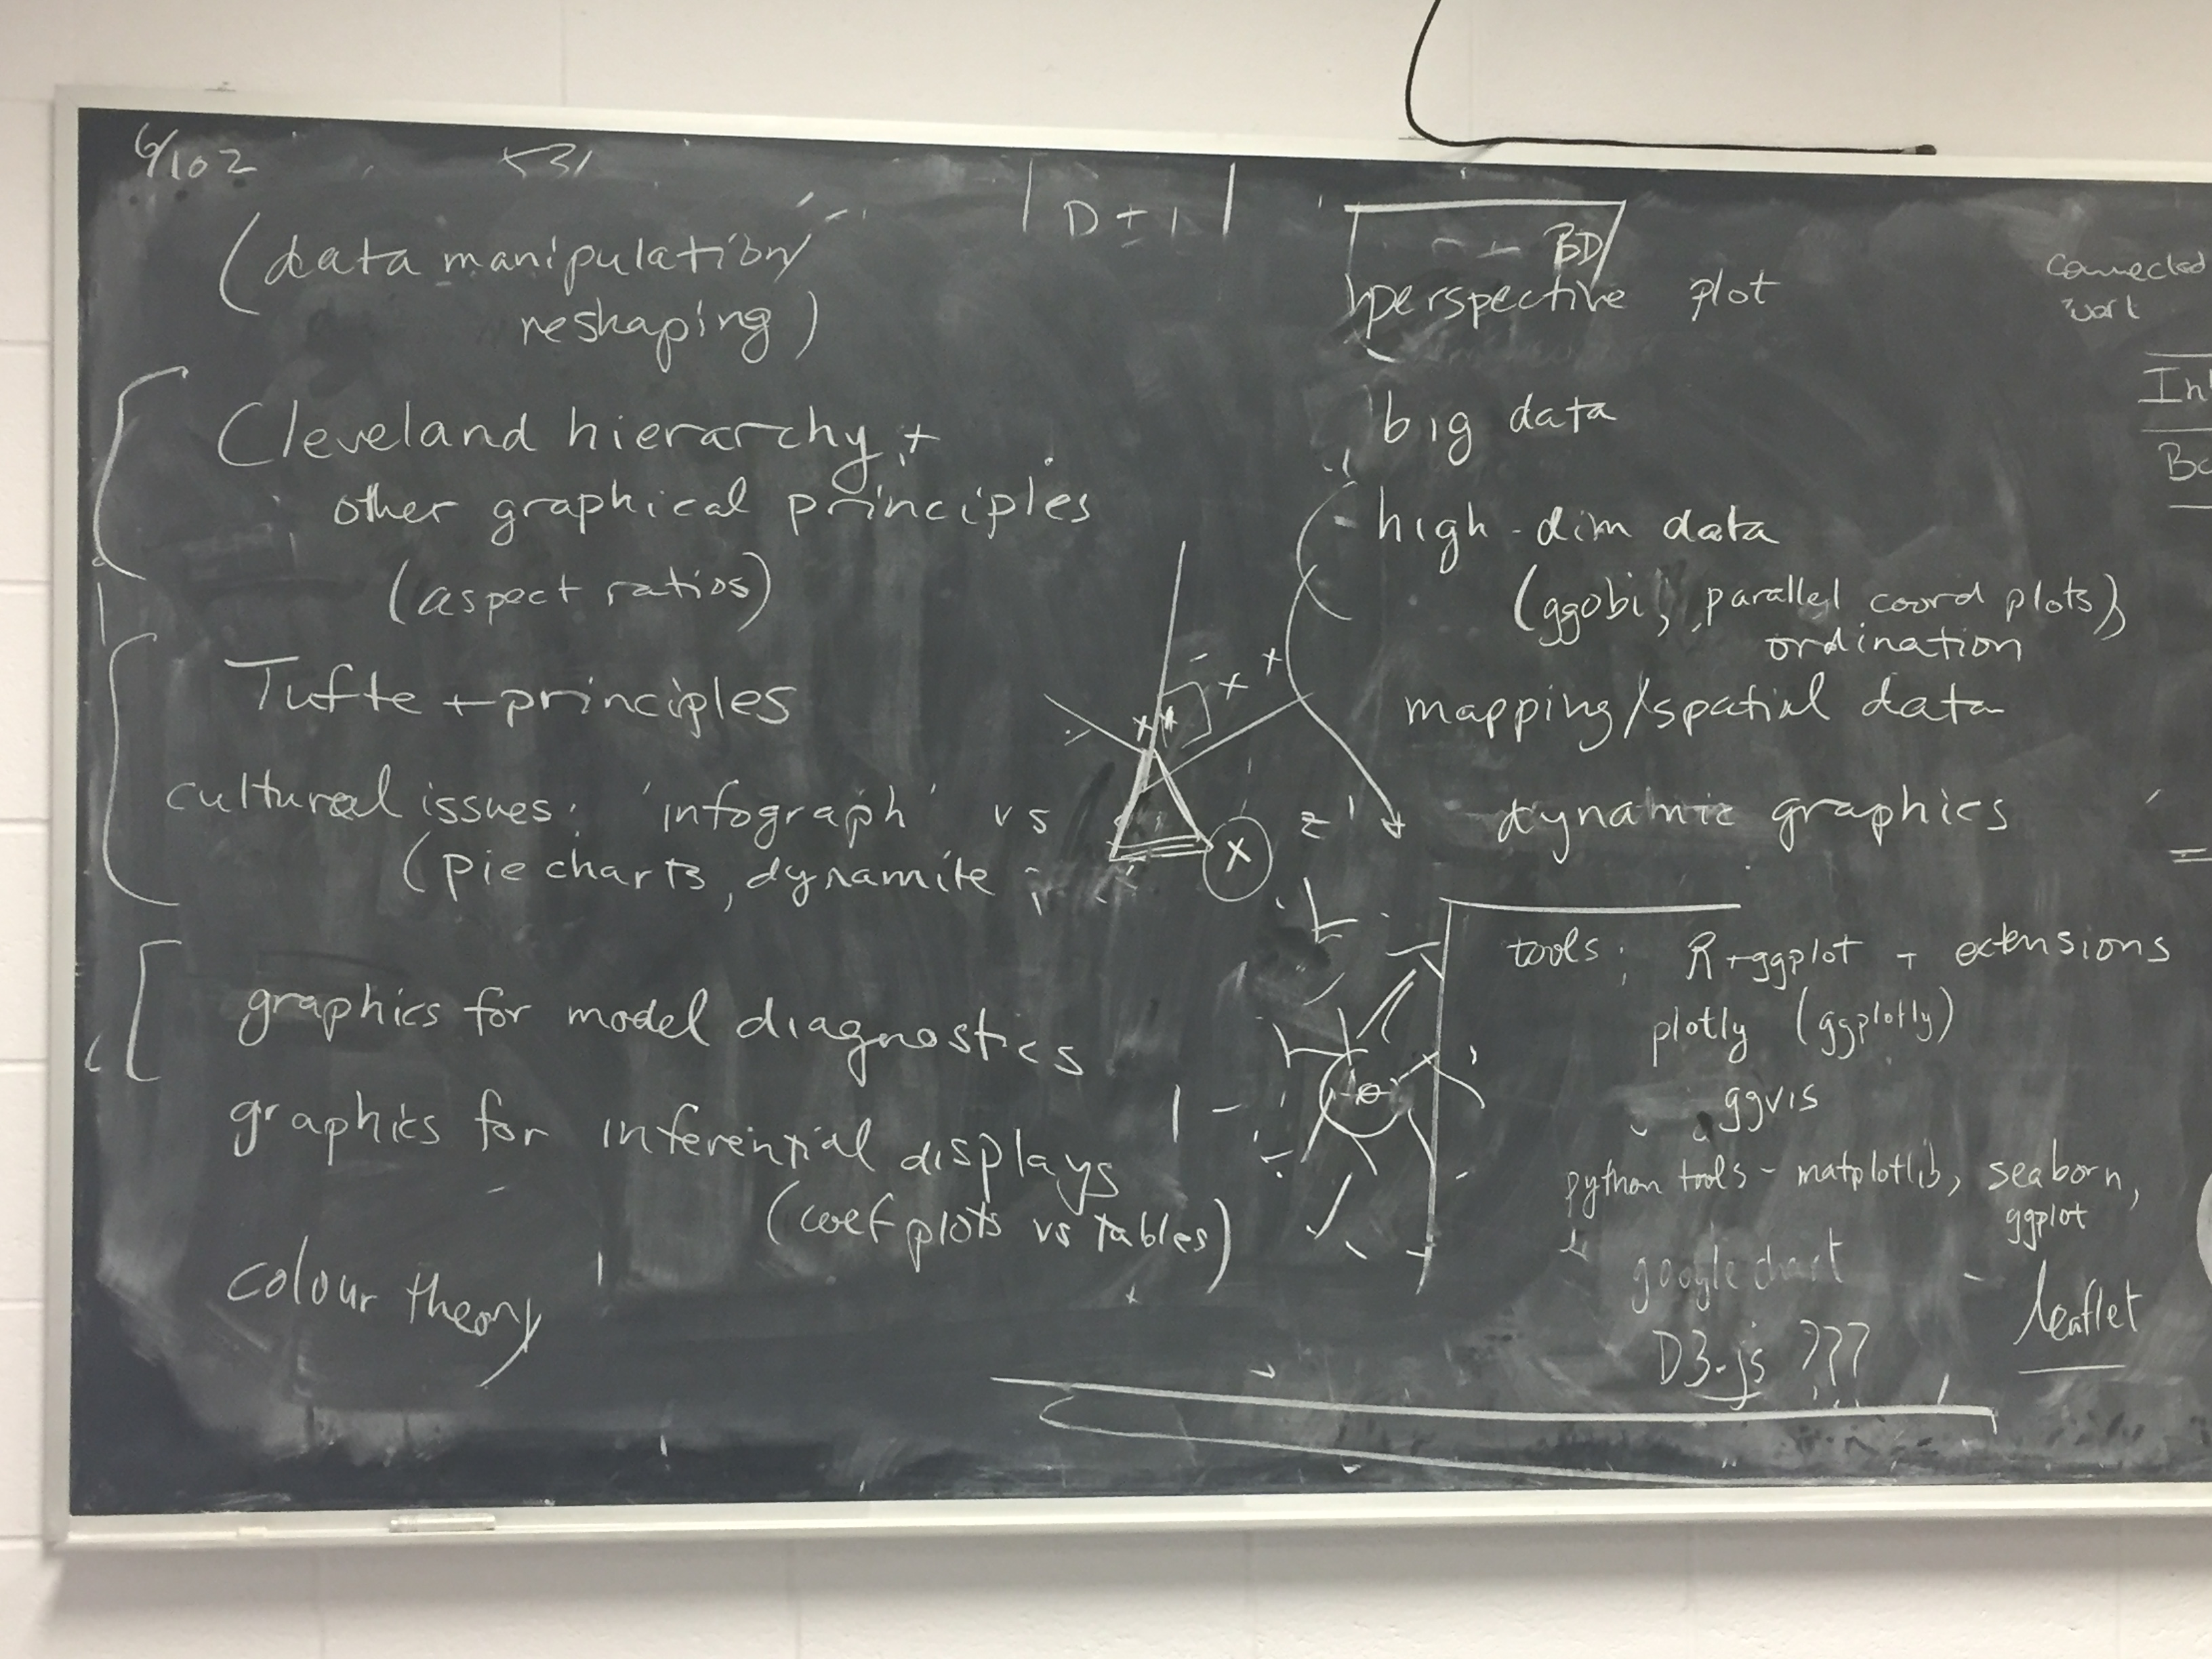 6/102
(data manipulation/
reshaping)
Cleveland hierarchy +
other graphical principles
(aspect ratios)
Tufte + principles
cultural issues: 'infograph' vs
(pie charts, dynamite
graphics for model diagnostics
graphics for inferential displays
(coef plots vs tables)
colour theory
D ± 1
BD
perspective plot
big data
high-dim data
(ggobi, parallel coord plots),
ordination
mapping/spatial data
dynamic graphics
tools: R+ggplot + extensions
plotly (ggplotly)
ggvis
python tools - matplotlib, seaborn,
ggplot
google chart
leaflet
D3-js ???
connected